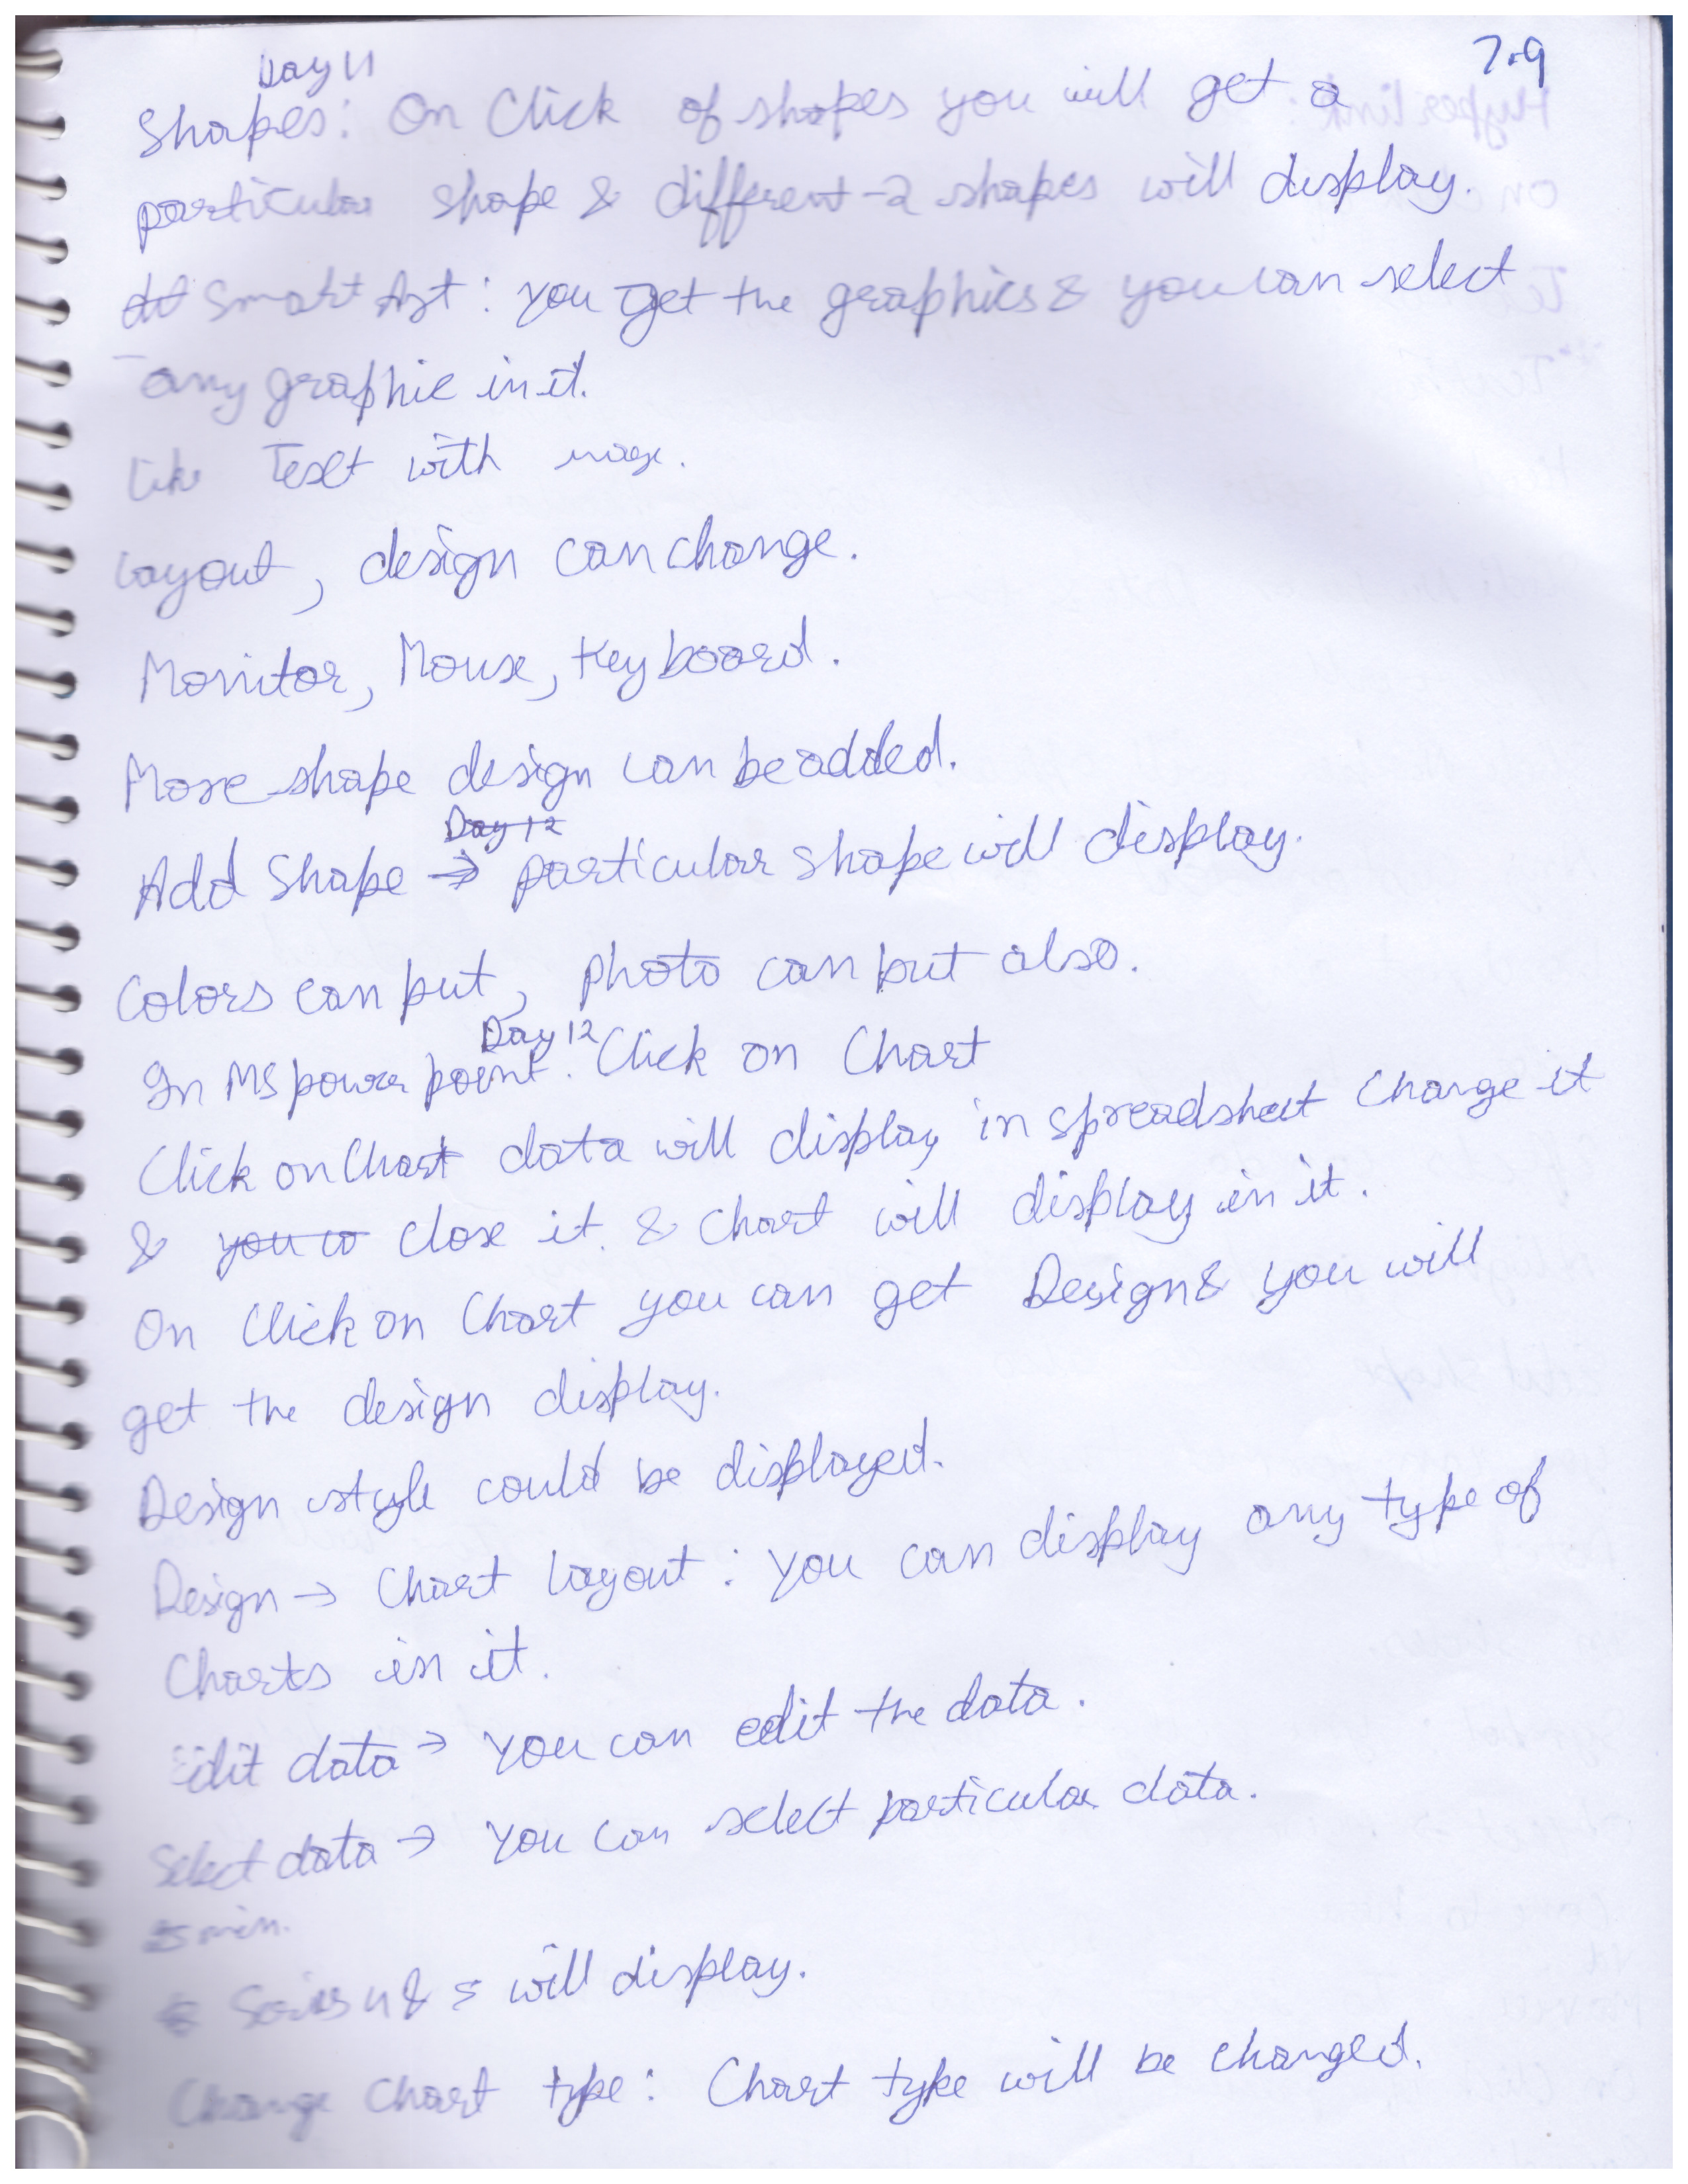 Day 11
7.9
Shapes: On Click of shapes you will get a
particular shape & different-2 shapes will display.
Smart Art: you get the graphics & you can select
any graphic in it.
like Text with image.
Layout, design can change.
Monitor, Mouse, Keyboard.
More shape design can be added.
Day 12
Add Shape → particular shape will display.
Colors can put, photo can put also.
Day 12
In MS power point. Click on Chart
Click on Chart data will display in spreadsheet change it
& you w close it. & chart will display in it.
On Click on Chart you can get Design & you will
get the design display.
Design style could be displayed.
Design → Chart layout: you can display any type of
Charts in it.
Edit data → you can edit the data.
Select data → you can select particular data.
min.
Series 4 & 5 will display.
Change Chart type: Chart type will be changed.